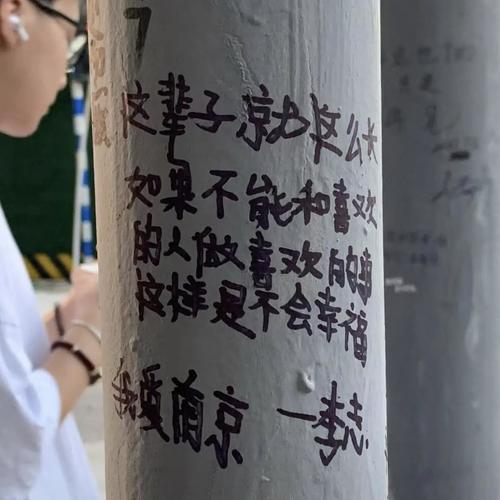 这辈子就这么长
如果不能和喜欢
的人做喜欢的事
这样是不会幸福
我爱南京 一李志